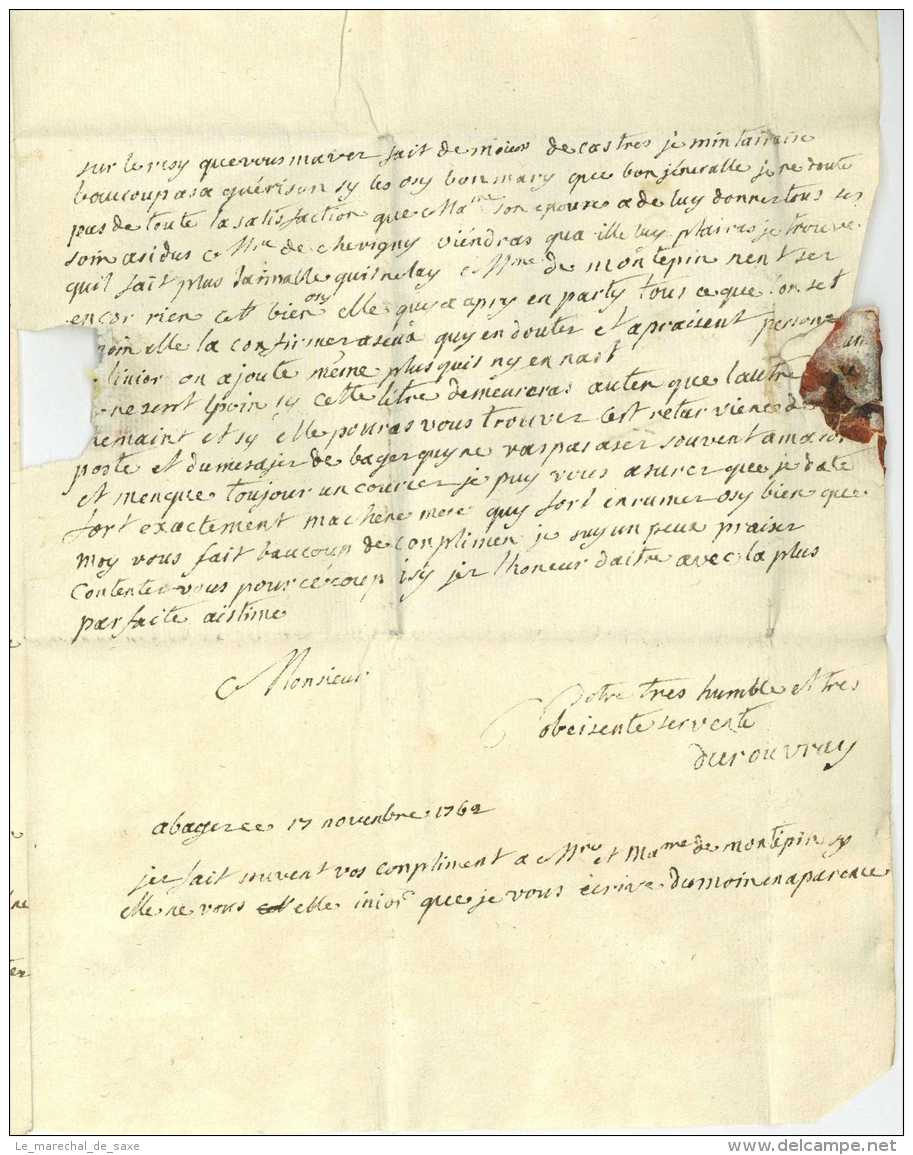 sur le resy que vous maver fait de moien de castres je mintairaise
beaucoup asa guérison sy les osy bon mary que bon jéneralle je ne doute
pas de toute la satisfaction que Ma^me son epouse a de luy donner tous ses
soin asidus Mre de chevigny viéndras qua ille luy plairas je trouve
quil fait plus laimable quil ne lay Mme de montepin nent set
encor rien cet bien osy elle quy a apry en party tous ce que lon set
moin elle la confirmera seua quy en douter et apraisent personne
linior on ajoute méme plus quil ny en na ot
ne sent lpoin sy cette litre demeureras auten que lautre
chemaint et sy elle pouras vous trouver cest retar viene de
poste et du mesajer de bager quy ne vas pas aser souvent a mason
et menque toujour un courier je puy vous asurer que je date
fort exactement ma chere mere quy fort enrumer osy bien que
moy vous fait baucoup de conplimen je suy un peux praiser
contenter vous pour ce coup isy jer lhoneur daitre avec la plus
parfaite aistime
Monsieur
Votre tres humble et tres
obeisente servente
durouvray
a bageree 17 novenbre 1762
jer fait souvent vos conpliment a Mre et Ma^me de montepin sy
elle ne vous elle inior que je vous écrive du moin en aparence
ne
ter
Le_marechal_de_saxe
delcampe.net